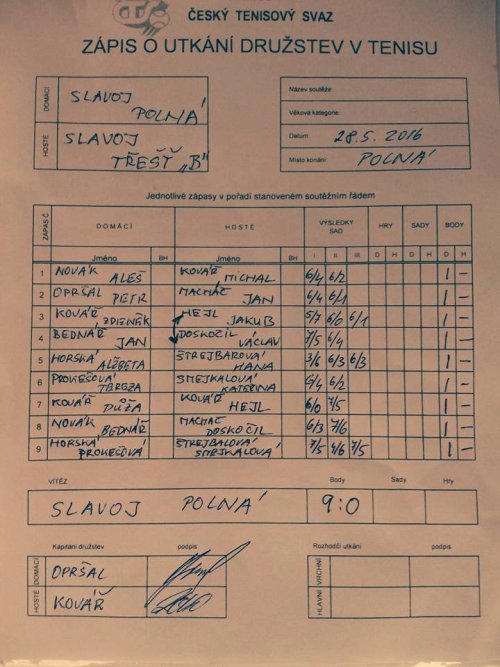 ČESKÝ TENISOVÝ SVAZ
ZÁPIS O UTKÁNÍ DRUŽSTEV V TENISU
DOMÁCÍ SLAVOJ POLNÁ
HOSTÉ SLAVOJ TŘEŠŤ „B"
Název soutěže:
Věková kategorie:
Datum 28.5. 2016
Místo konání: POLNÁ
Jednotlivé zápasy v pořadí stanoveném soutěžním řádem
ZÁPAS Č. DOMÁCÍ HOSTÉ VÝSLEDKY SAD HRY SADY BODY
Jméno BH Jméno BH I. II. III. D H D H D H
1 NOVÁK ALEŠ KOVÁŘ MICHAL 6/4 6/2 1 –
2 OPRŠAL PETR MACHAČ JAN 6/4 6/1 1 –
3 KOVÁŘ ZDENĚK HEJL JAKUB 5/7 6/0 6/1 1 –
4 BEDNÁŘ JAN DOSKOČIL VÁCLAV 7/5 6/4 1 –
5 HORSKÁ ALŽBETA ŠTREJBAROVÁ HANA 3/6 6/3 6/3 1 –
6 PROKEŠOVÁ TEREZA SMEJKALOVÁ KATEŘINA 6/4 6/2 1 –
7 KOVÁŘ KOVÁŘ HEJL 6/0 7/5 1 –
8 NOVÁK BEDNÁŘ MACHAČ DOSKOČIL 6/3 7/6 1 –
9 HORSKÁ PROKEŠOVÁ ŠTREJBALOVÁ SMEJKALOVÁ 7/5 4/6 7/5 1 –
VÍTĚZ Body Sady Hry
SLAVOJ POLNÁ 9:0
Kapitáni družstev podpis Rozhodčí utkání podpis
DOMÁCÍ OPRŠAL VRCHNÍ
HOSTÉ KOVÁŘ HLAVNÍ